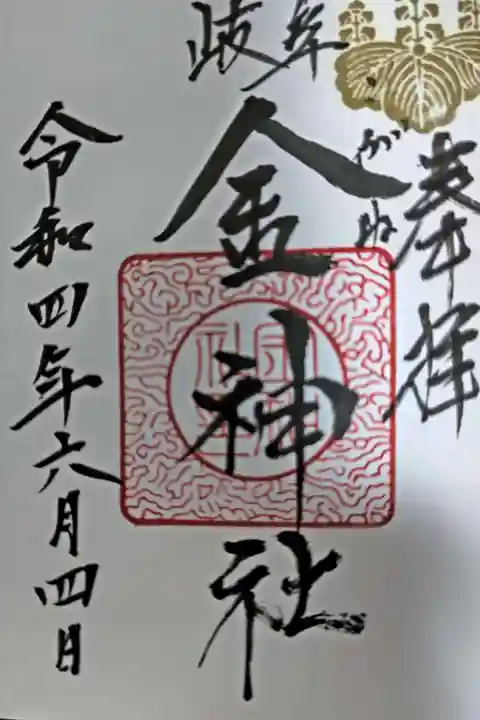 奉拝
岐阜
金神社
こがね
令和四年六月四日